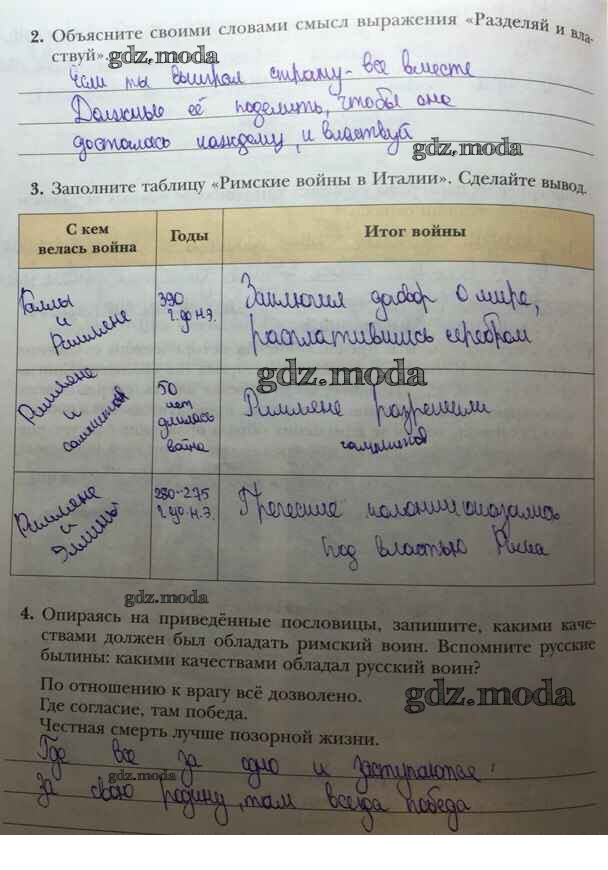 2. Объясните своими словами смысл выражения «Разделяй и вла-
ствуй».
gdz.moda
Если ты выиграл страну - все вместе
Должные её поделить, чтобы она
досталась каждому, и властвуй
gdz.moda
3. Заполните таблицу «Римские войны в Италии». Сделайте вывод.
С кем
велась война
Годы
Итог войны
Галлы
и
Римляне
390
г. до н.э.
Заключил договор о мире,
расплатившись серебром
gdz.moda
Римляне
и
самнитов
50
лет
длилась
война
Римляне разрешили
самнитов
Римляне
и
280-275
г. до н.э.
Греческие колонии оказались
под властью Рима
gdz.moda
4. Опираясь на приведённые пословицы, запишите, какими каче-
ствами должен был обладать римский воин. Вспомните русские
былины: какими качествами обладал русский воин?
По отношению к врагу всё дозволено.
gdz.moda
Где согласие, там победа.
Честная смерть лучше позорной жизни.
Где все за одно и заступаются
gdz.moda
за свою родину, там всегда победа